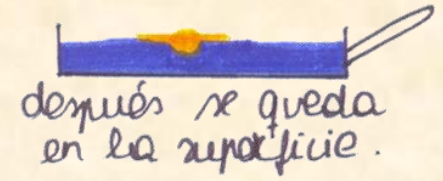 después se queda
en la superficie.